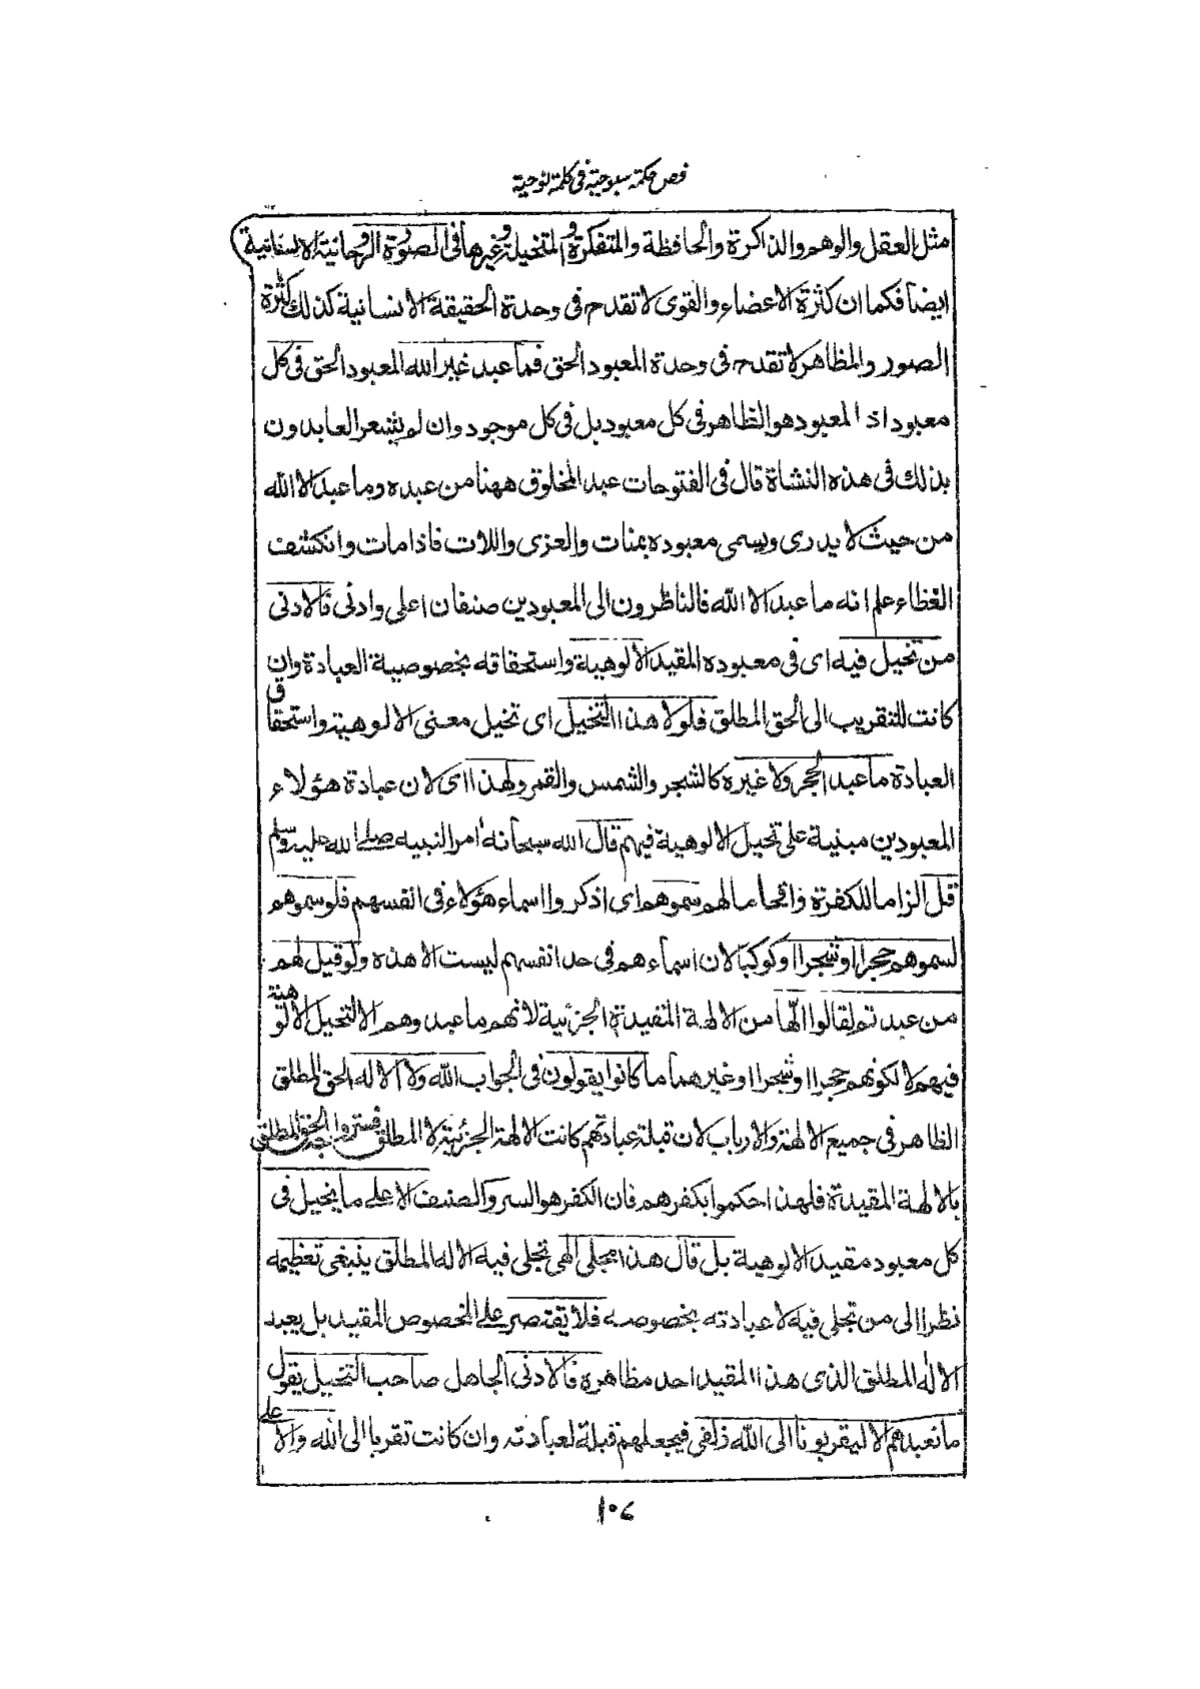 فص حكمة سبوحية فى كلمة نوحية
مثل العقل والوهم والذاكرة والحافظة والمتفكرة والمتخيلة وغيرها فى الصورة الروحانية الانسانية
ايضا فكما ان كثرة الاعضاء والقوى لا تقدح فى وحدة الحقيقة الانسانية كذلك كثرة
الصور والمظاهر لا تقدح فى وحدة المعبود الحق فما عبد غير الله المعبود الحق فى كل
معبود اذ المعبود هو الظاهر فى كل معبود بل فى كل موجود وان لم يشعر العابدون
بذلك فى هذه النشاة قال فى الفتوحات عبد المخلوق ههنا من عبده وما عبد الا الله
من حيث لا يدرى ويسمى معبوده بمنات والعزى واللات فاذا مات وانكشف
الغطاء علم انه ما عبد الا الله فالناظرون الى المعبودين صنفان اعلى وادنى فالادنى
من تخيل فيه اى فى معبوده المقيد الالوهية واستحقاقه بخصوصية العبادة وان
كانت للتقريب الى الحق المطلق فلولا هذا التخيل اى تخيل معنى الالوهية واستحقاق
العبادة ما عبد الحجر ولا غيره كالشجر والشمس والقمر ولهذا اى لان عبادة هؤلاء
المعبودين مبنية على تخيل الالوهية فيهم قال الله سبحانه امرا لنبيه صلى الله عليه وسلم
قل الزاما للكفرة وافحاما لهم سموهم اى اذكروا اسماء هؤلاء فى انفسهم فلو سموهم
لسموهم حجرا او شجرا او كوكبا لان اسماءهم فى حد انفسهم ليست الا هذه ولو قيل لهم
من عبدتم لقالوا الها من الالهة المقيدة الجزئية لانهم ما عبدوهم الا لتخيل الالوهية
فيهم لا لكونهم حجرا او شجرا او غيرهما ما كانوا يقولون فى الجواب الله ولا الاله الحق المطلق
الظاهر فى جميع الالهة والارباب لان قبلة عبادتهم كانت الالهة الجزئية لا المطلق فستروا الحق المطلق
بالالهة المقيدة فلهذا حكموا بكفرهم فان الكفر هو الستر والصنف الاعلى ما يخيل فى
كل معبود مقيد الالوهية بل قال هذا مجلى الهى تجلى فيه الاله المطلق ينبغى تعظيمه
نظرا الى من تجلى فيه لا عبادته بخصوصه فلا يقتصر على الخصوص المقيد بل يعبد
الاله المطلق الذى هذا المقيد احد مظاهره فالادنى الجاهل صاحب التخيل يقول
ما نعبدهم الا ليقربونا الى الله زلفى فيجعلهم قبلة لعبادته وان كانت تقربا الى الله والاعلى
١٠٦